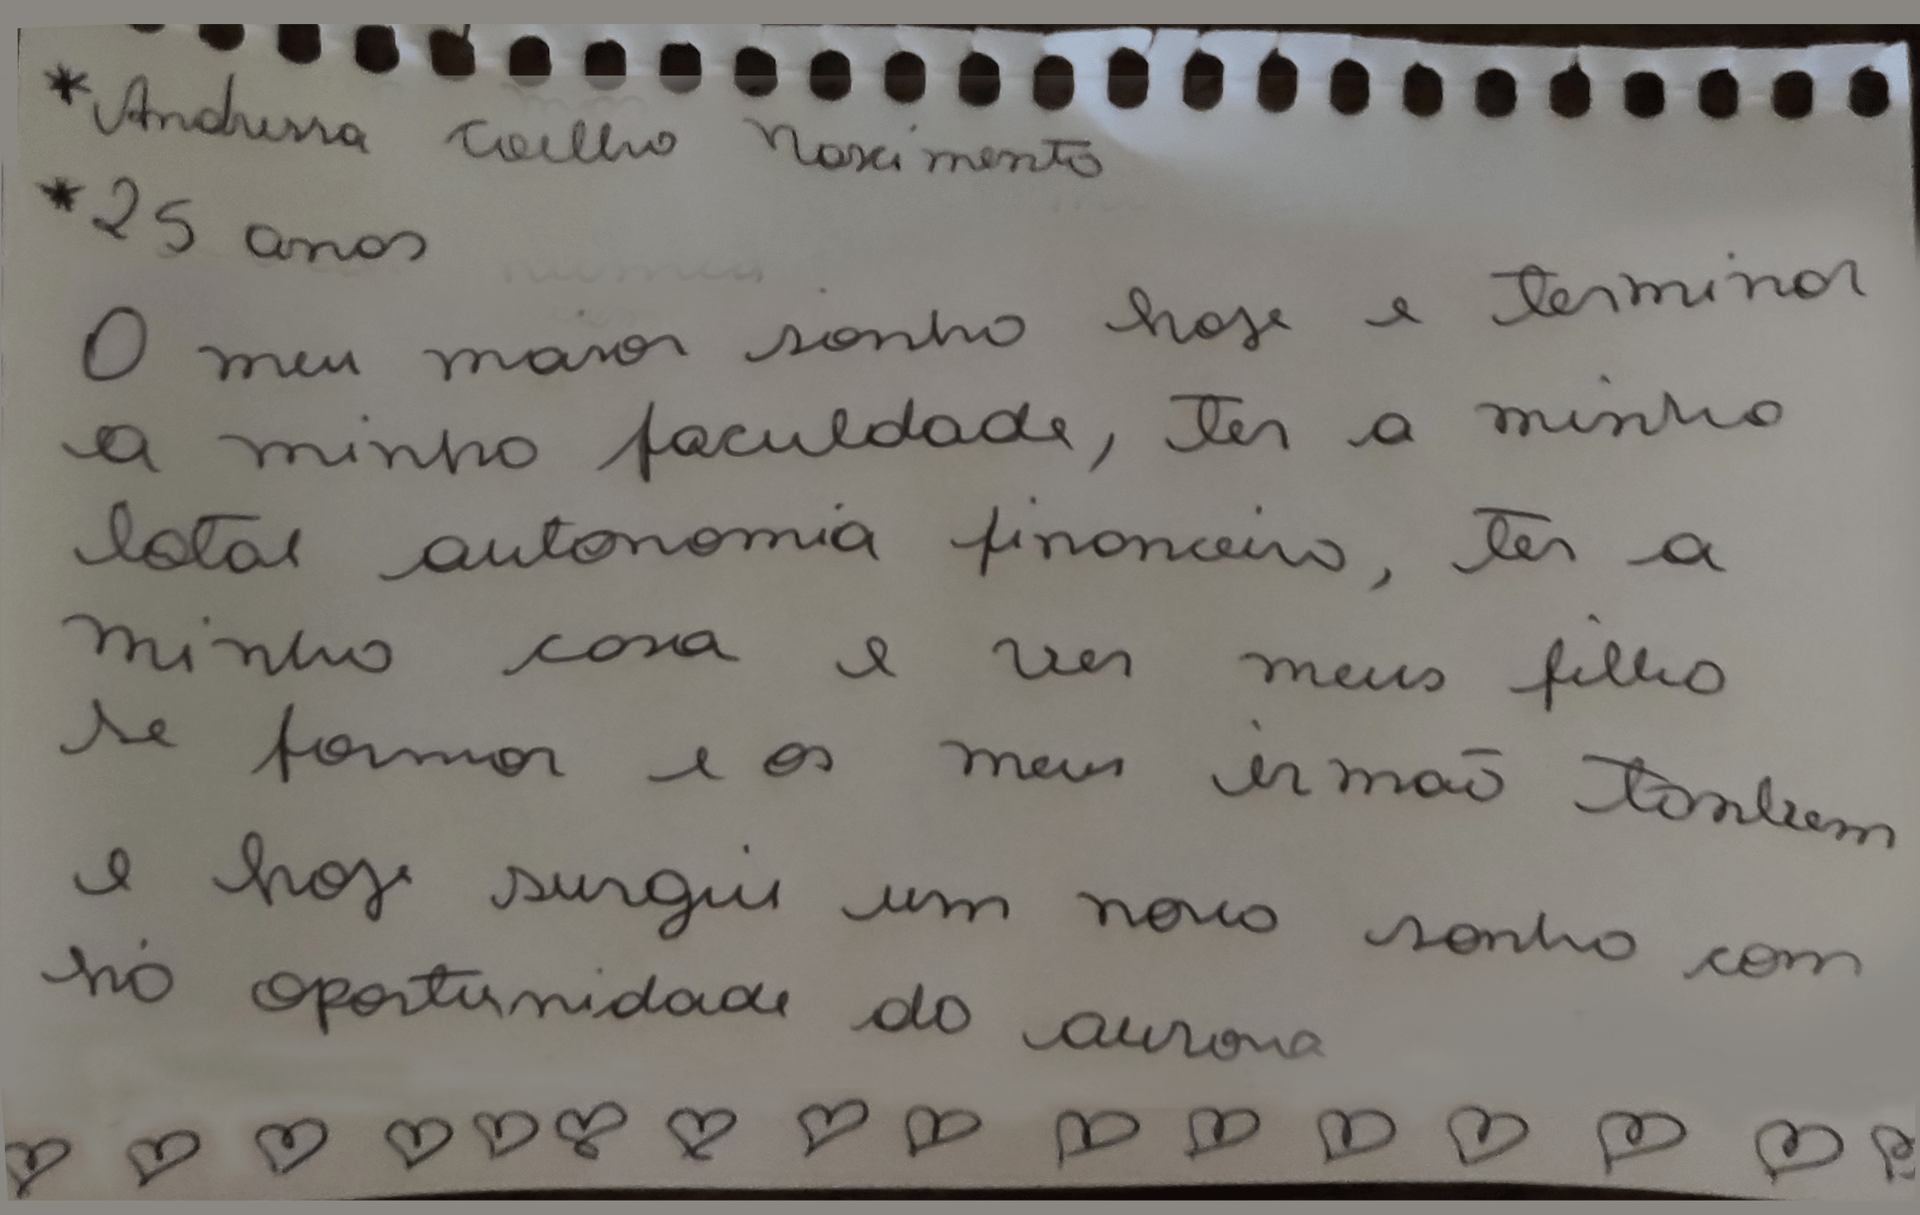 *Andressa Coelho Nascimento
*25 anos
O meu maior sonho hoje e terminar
a minha faculdade, ter a minha
total autonomia financeira, ter a
minha casa e ver meus filho
se formar e os meus irmaõ tanbem
e hoje surgiu um novo sonho com
oportunidade do aurora